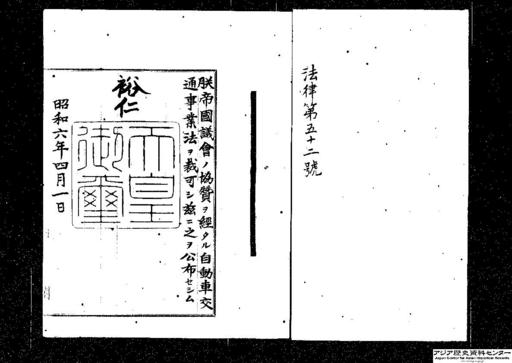 法律第五十二號
朕帝國議會ノ協贊ヲ經タル自動車交
通事業法ヲ裁可シ茲ニ之ヲ公布セシム
裕仁
天皇
御璽
昭和六年四月一日
アジア歴史資料センター
Japan Center for Asian Historical Records